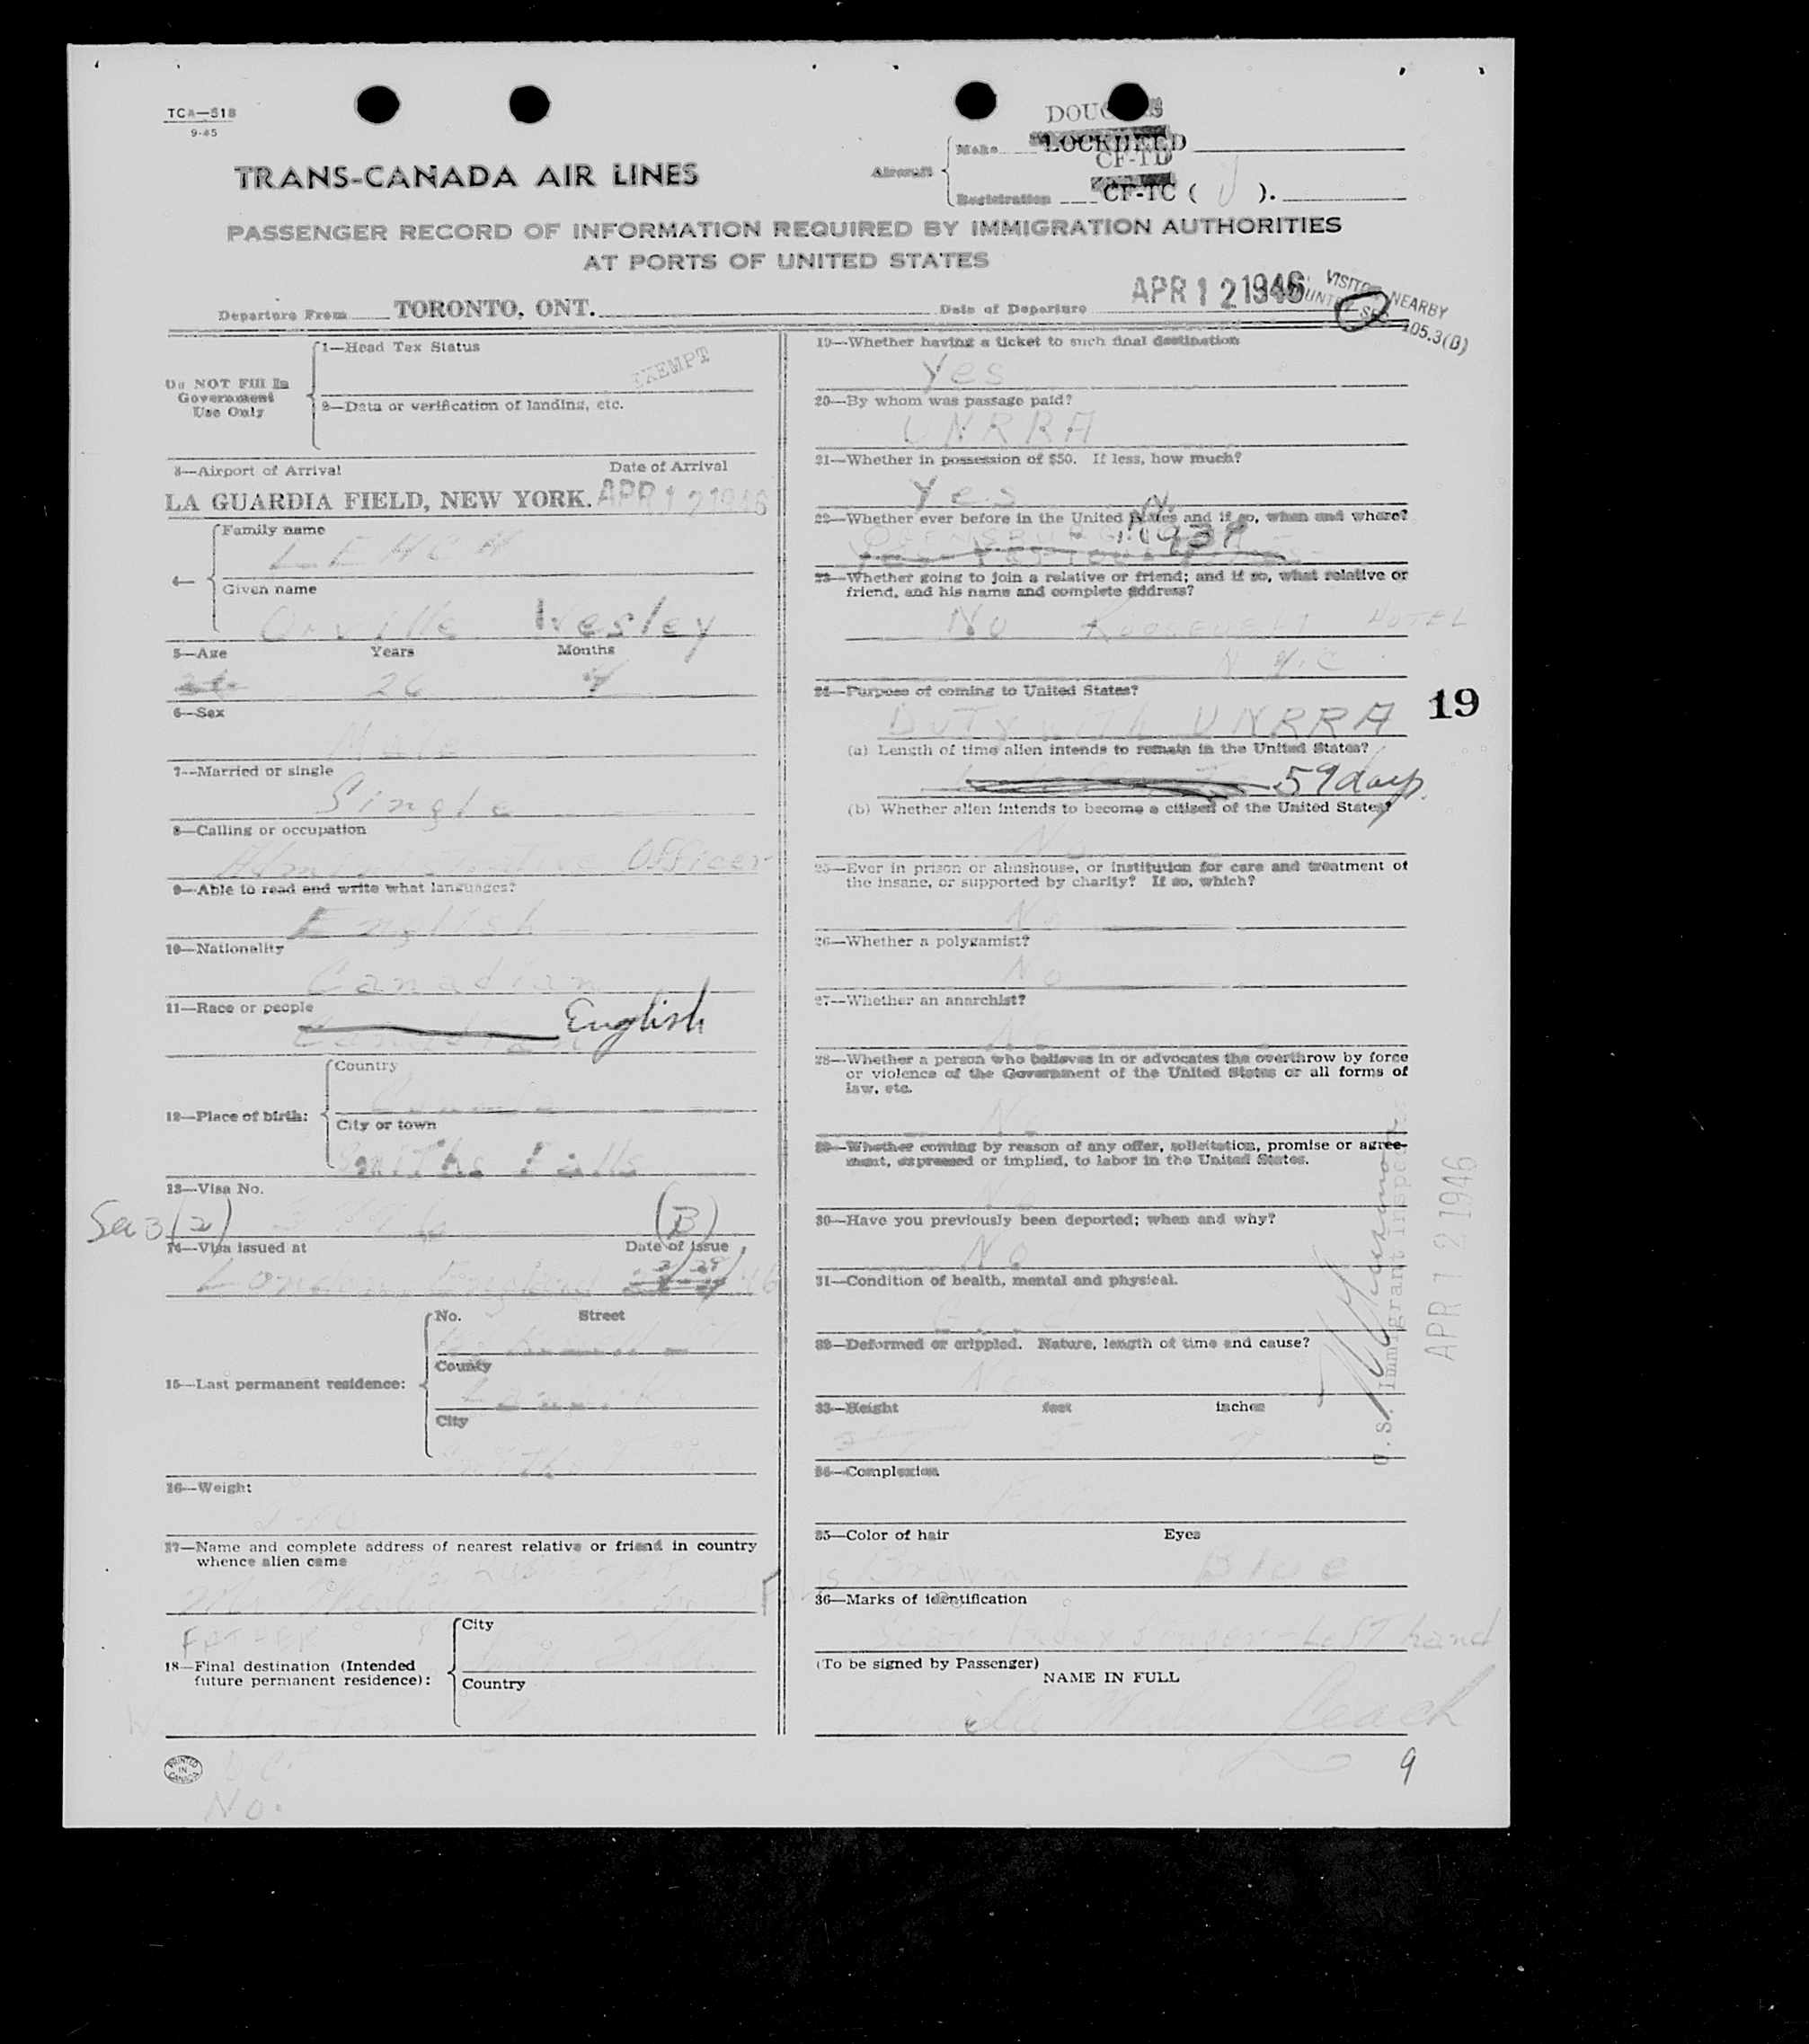 TCA—518
9-45
TRANS-CANADA AIR LINES
Aircraft
Make
DOUGLAS
LOCKHEED
CF-TD
Registration CF-TC ( J ).
PASSENGER RECORD OF INFORMATION REQUIRED BY IMMIGRATION AUTHORITIES
AT PORTS OF UNITED STATES
Departure From TORONTO, ONT. Date of Departure APR 12 1946
VISITOR NEARBY
COUNTRY SEC 105.3(B)
Do NOT Fill In
Government
Use Only
1—Head Tax Status
EXEMPT
2—Data or verification of landing, etc.
3—Airport of Arrival Date of Arrival
LA GUARDIA FIELD, NEW YORK. APR 12 1946
4—
Family name
LEACH
Given name
Orville Wesley
5—Age Years Months
26 4
6—Sex
Male
7—Married or single
Single
8—Calling or occupation
Administrative Officer
9—Able to read and write what languages?
English
10—Nationality
Canadian
11—Race or people
Canadian English
12—Place of birth:
Country
Canada
City or town
Smiths Falls
13—Visa No.
Sec 3(2) (B)
14—Visa issued at Date of issue
London, England
15—Last permanent residence:
No. Street
County
Lanark
City
Smiths Falls
16—Weight
17—Name and complete address of nearest relative or friend in country
whence alien came
FATHER
18—Final destination (Intended
future permanent residence):
City
Country
D.C.
No.
PRINTED
IN
CANADA
19—Whether having a ticket to such final destination
Yes
20—By whom was passage paid?
UNRRA
21—Whether in possession of $50. If less, how much?
Yes
22—Whether ever before in the United States and if so, when and where?
1939
23—Whether going to join a relative or friend; and if so, what relative or
friend, and his name and complete address?
No ROOSEVELT HOTEL
N.Y.C.
24—Purpose of coming to United States?
DUTY with UNRRA
(a) Length of time alien intends to remain in the United States?
59 days
(b) Whether alien intends to become a citizen of the United States?
No
25—Ever in prison or almshouse, or institution for care and treatment of
the insane, or supported by charity? If so, which?
No
26—Whether a polygamist?
No
27—Whether an anarchist?
No
28—Whether a person who believes in or advocates the overthrow by force
or violence of the Government of the United States or all forms of
law, etc.
No
29—Whether coming by reason of any offer, solicitation, promise or agree-
ment, expressed or implied, to labor in the United States.
No
30—Have you previously been deported; when and why?
No
31—Condition of health, mental and physical.
32—Deformed or crippled. Nature, length of time and cause?
No
33—Height feet inches
5 7
34—Complexion
35—Color of hair Eyes
Brown Blue
36—Marks of identification
Scar Index finger-Left hand
(To be signed by Passenger)
NAME IN FULL
Orville Wesley Leach
19
U.S. Immigrant Inspector
APR 12 1946
9